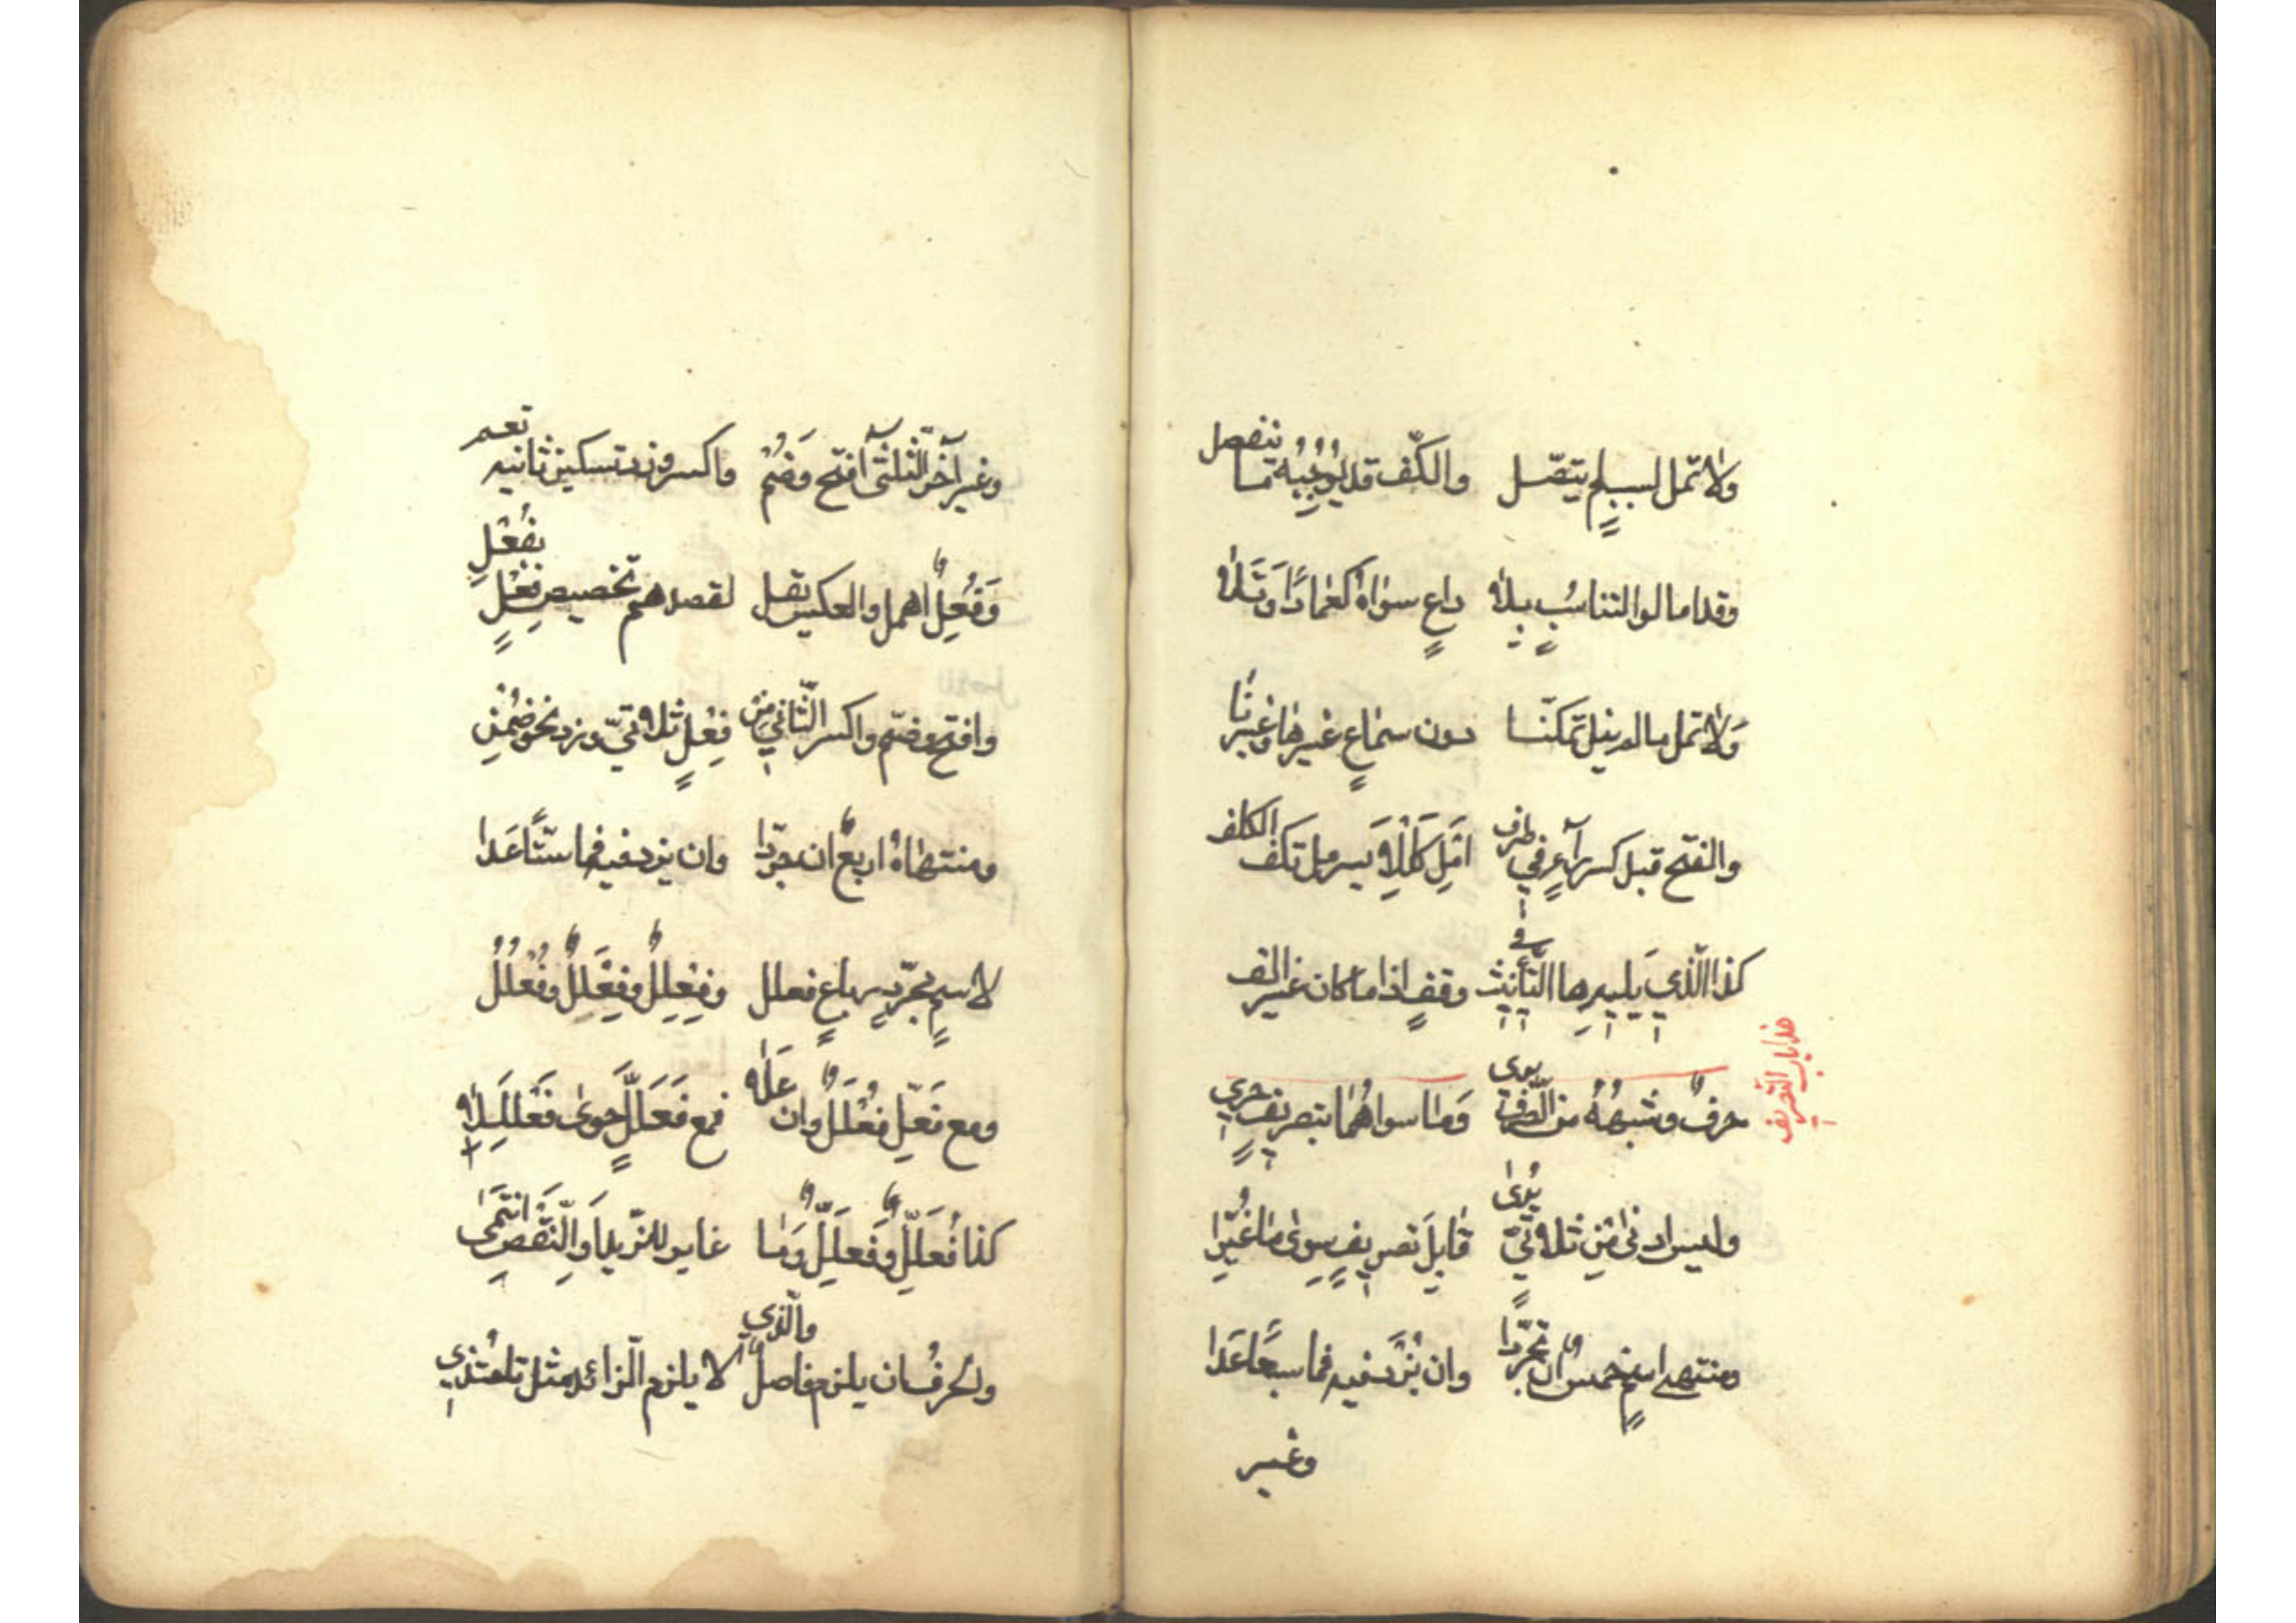 ولا تمل لسبب لم يتصل والكف قد يوجبه ما ينفصل
وقد امالوا لتناسب بلا داع سواه كعمادا وتلا
ولا تمل ما لم ينل تمكنا دون سماع غيرها وغيرنا
والفتح قبل كسر راء في طرف امل كللا يسر مل تكف الكلف
كذا الذي يليه ها التأنيث في وقف اذا ما كان غير الف
هذا باب التصريف
حرف وشبهه من الصرف بري وما سواهما بتصريف حري
وليس ادنى من ثلاثي يرى قابل تصريف سوى ما غيرا
ومنتهى اسم خمس ان تجردا وان يزد فيه فما سبعا عدا
وغير
وغير آخر الثلثي افتح وضم واكسر وزد تسكين ثانيه تعم
وفعل اهمل والعكس يقل لقصدهم تخصيص فعل بفعل
وافتح وضم واكسر الثاني من فعل ثلاثي وزد نحو ضمن
ومنتهاه اربع ان جردا وان يزد فيه فما ستا عدا
لاسم مجرد رباع فعلل وفعلل وفعلل وفعلل
ومع فعل فعلل وان علا فمع فعلل حوى فعللا
كذا فعلل وفعلل وما غاير للزيد او النقص انتمى
والحرف ان يلزم فاصل والذي لا يلزم الزائد مثل تا احتذي